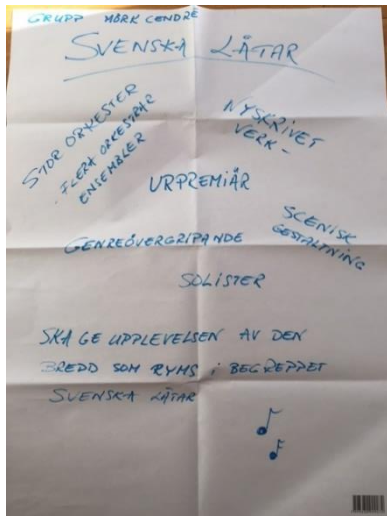 GRUPP MÖRK CENDRÉ
SVENSKA LÅTAR
STOR ORKESTER
- FLERA ORKESTRAR
ENSEMBLER
NYSKRIVET
VERK -
URPREMIÄR
SCENISK
GESTALTNING
GENREÖVERGRIPANDE
SOLISTER
SKA GE UPPLEVELSEN AV DEN
BREDD SOM RYMS i BEGREPPET
SVENSKA LÅTAR